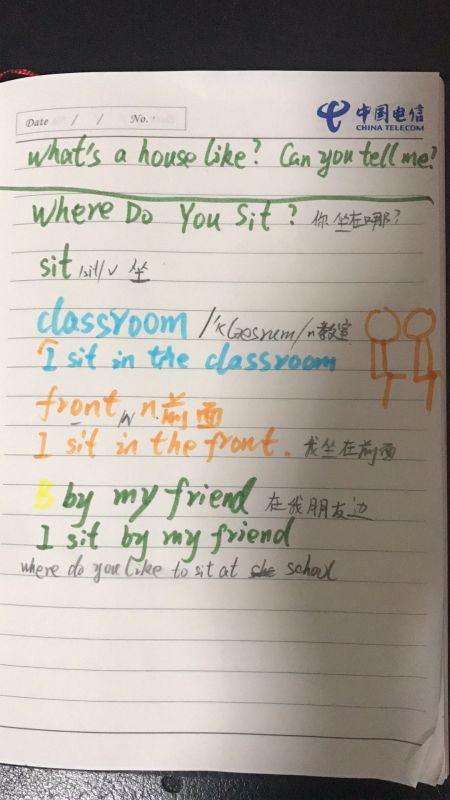 Date / / No.
中国电信
CHINA TELECOM
What's a house like? Can you tell me?
Where Do You Sit? 你坐在哪?
sit /sit/ v 坐
classroom /'klæsrum/ n 教室
I sit in the classroom
front n 前面
I sit in the front. 我坐在前面
B by my friend 在我朋友边
I sit by my friend
where do you like to sit at school